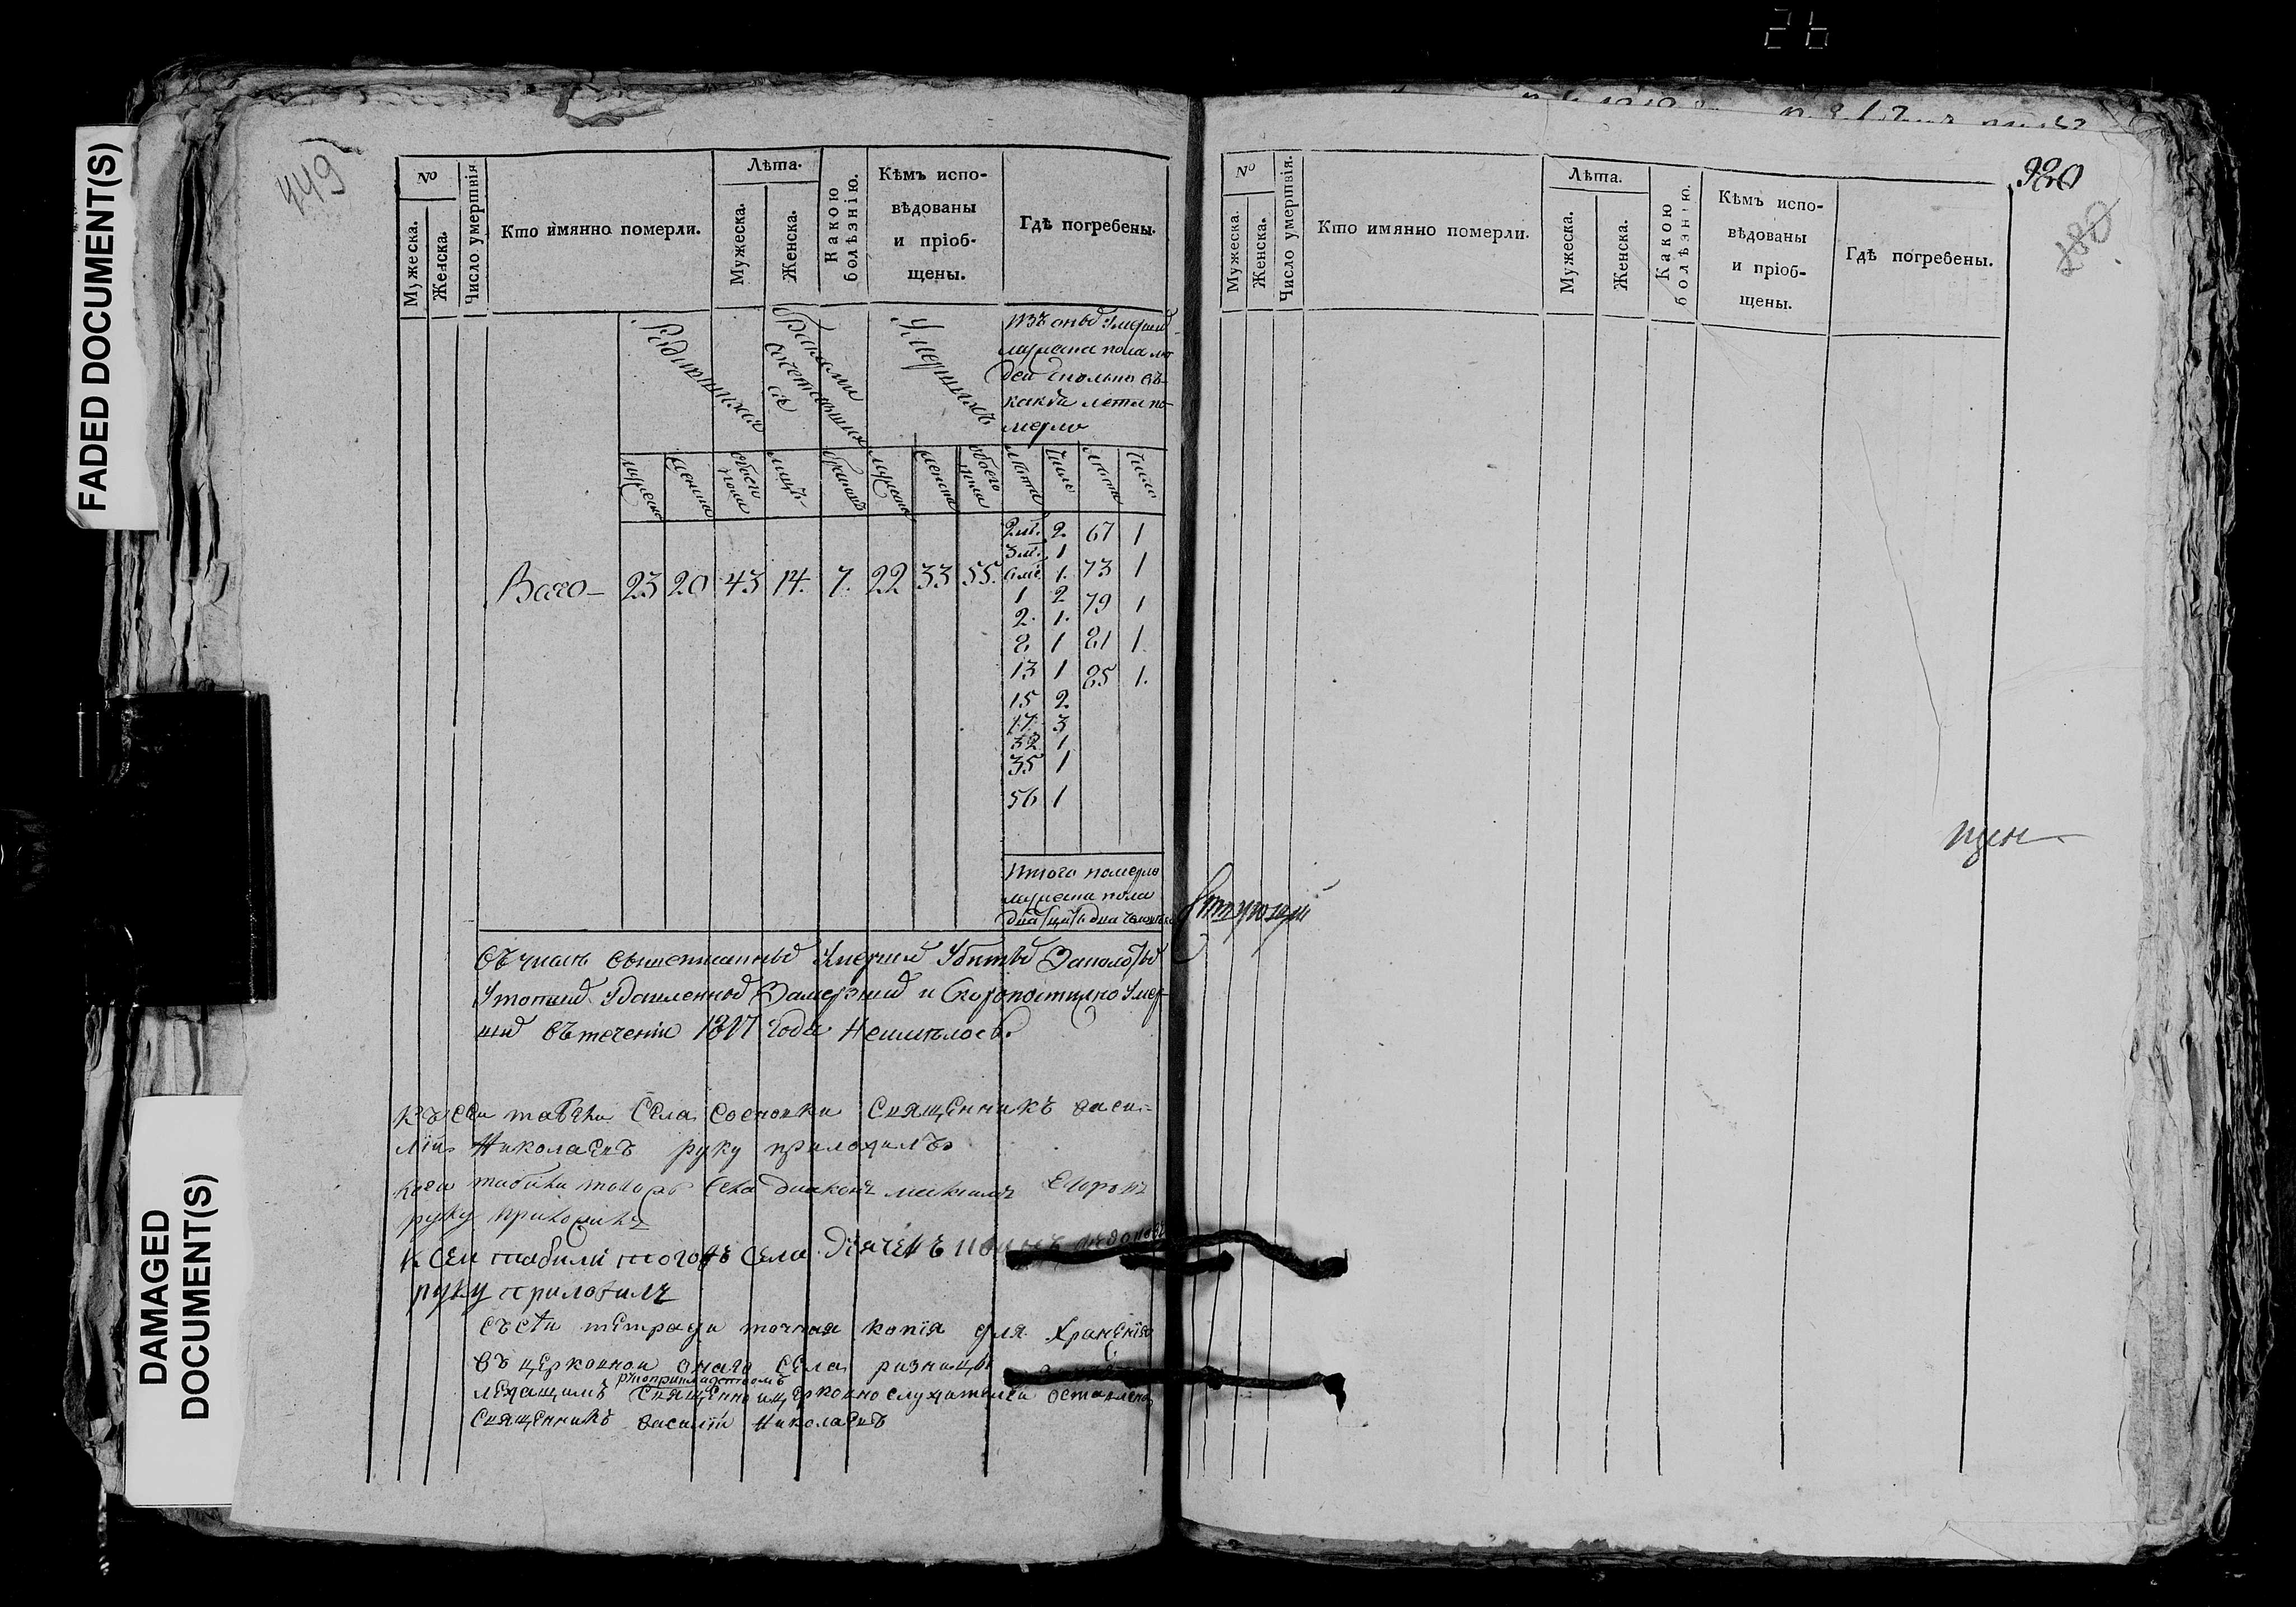 26
FADED DOCUMENT(S)
DAMAGED
DOCUMENT(S)
449
№
Мужеска.
Женска.
Число умертвія
Кто имянно померли.
Лѣта.
Мужеска.
Женска.
Какою болѣзнію.
Кѣмъ испо-
вѣдованы
и пріоб-
щены.
Гдѣ погребены.
Родившихся
Бракомъ
сочетавших
ся
Умершихъ
изъ оныхъ умерших
мужеска пола лю
дей сколько въ
какія лета по-
мерло
мужеска
женска
обоего пола
лицъ
браковъ
мужеска
женска
обоего пола
лѣта
число
лѣта
число
Всего 23 20 43 14. 7. 22 33 55.
2 мѣ. 2 67 1
3 мѣ. 1
6 мѣ. 1. 73 1
1 2
2. 1. 79 1
8 1 81 1.
13 1 85 1.
15 2
17 3
32 1
35 1
56 1
Итого померло
мужеска пола
двадцать два человека
Въ числѣ вышеписанныхъ умершихъ убитыхъ
утопших удавленных замерзших и скоропостижно умер-
ших въ теченіи 1817 года неимѣлось.
Къ сей табели села Сосновки священникъ Васи-
лій Николаевъ руку приложилъ
к сей табели того жъ села диаконъ
руку приложилъ
К сей табели тогожъ села дьячекъ
руку приложилъ
съ сей тетради точная копія для храненія
въ церковной онаго села ризницѣ
лежащимъ рукоприкладствомъ священно и церковнослужителей оставлена
Священникъ Василій Николаевъ
№
Мужеска.
Женска.
Число умертвія.
Кто имянно померли.
Лѣта.
Мужеска.
Женска.
Какою болѣзнію.
Кѣмъ испо-
вѣдованы
и пріоб-
щены.
Гдѣ погребены.
щен